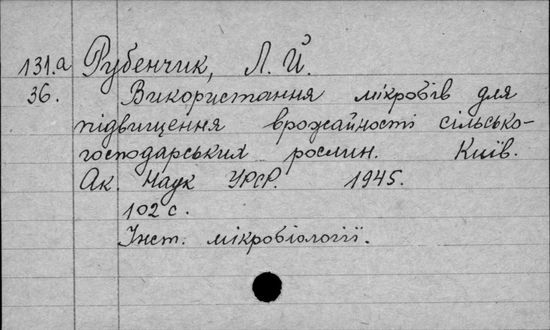 131.а Рубенчик, Л. Й.
36. Використання мікробів для
підвищення врожайності сільсько-
господарських рослин. Київ.
Ак. Наук УРСР. 1945.
102 с.
Інст. мікробіології.